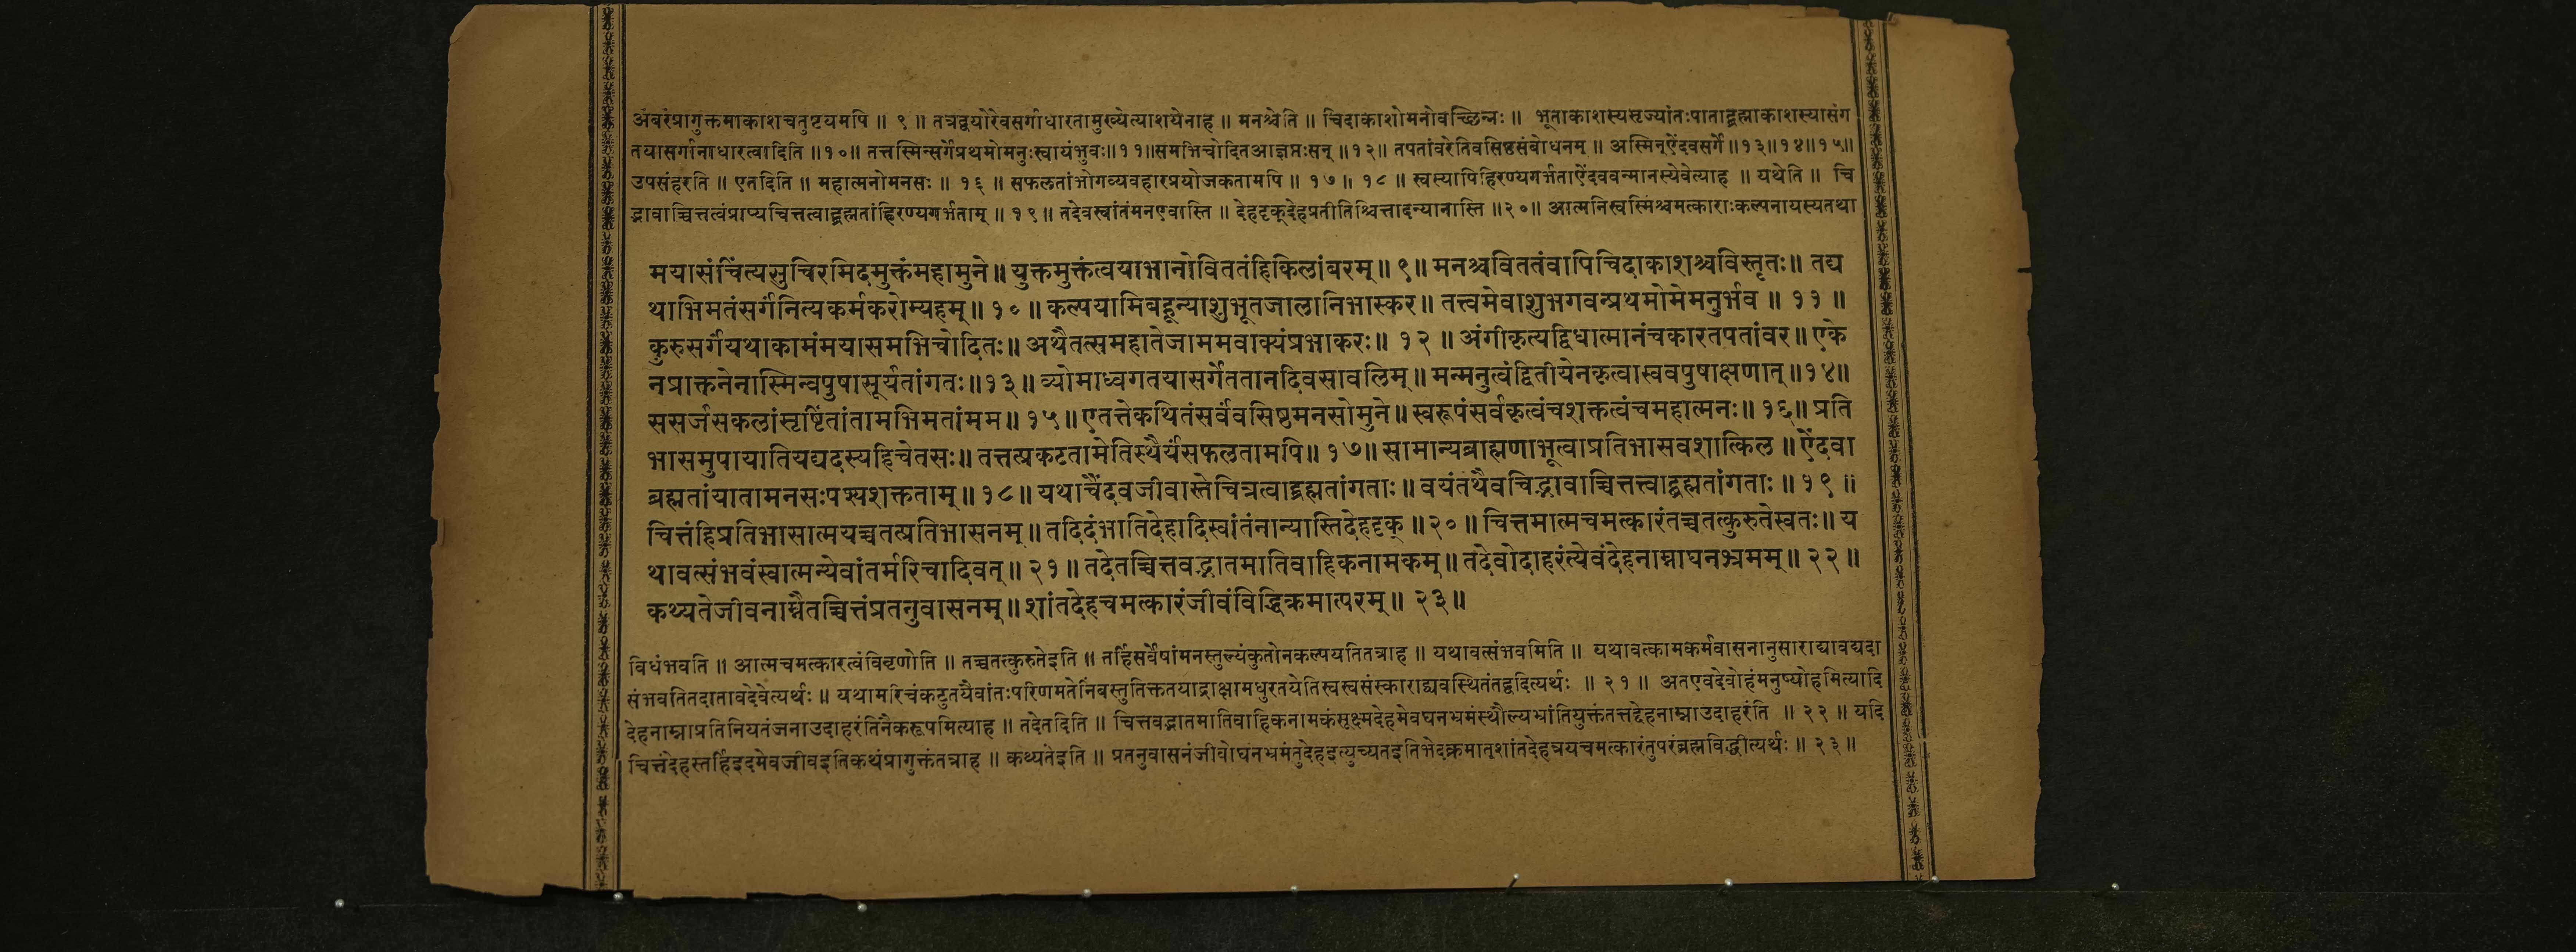 अंबरंप्रागुक्तमाकाशचतुष्टयमपि ॥ ९ ॥ तत्रद्वयोरेवसर्गाधारतामुख्येत्याशयेनाह ॥ मनश्चेति ॥ चिदाकाशोमनोवच्छिन्नः ॥ भूताकाशस्यसृज्यांतःपाताद्ब्रह्माकाशस्यासंग
तयासर्गानाधारत्वादिति ॥१०॥ तत्तस्मिन्सर्गेप्रथमोमनुःस्वायंभुवः॥११॥समभिचोदितआज्ञप्तःसन् ॥१२॥ तपतांवरेतिवसिष्ठसंबोधनम् ॥ अस्मिन्ऐंदवसर्गे॥१३॥१४॥१५॥
उपसंहरति ॥ एतदिति ॥ महात्मनोमनसः ॥ १६ ॥ सफलतांभोगव्यवहारप्रयोजकतामपि ॥ १७ ॥ १८ ॥ स्वस्यापिहिरण्यगर्भताऐंदववन्मानस्येवेत्याह ॥ यथेति ॥ चि
द्भावाच्चित्तत्वंप्राप्यचित्तत्वाद्ब्रह्मतांहिरण्यगर्भताम् ॥ १९ ॥ तदेवस्वांतंमनएवास्ति ॥ देहदृक्देहप्रतीतिश्चित्तादन्यानास्ति ॥२०॥ आत्मनिस्वस्मिंश्चमत्काराःकल्पनायस्यतथा
मयासंचिंत्यसुचिरमिदमुक्तंमहामुने॥ युक्तमुक्तंत्वयाभानोविततंहिकिलांबरम्॥ ९॥ मनश्चविततंवापिचिदाकाशश्चविस्तृतः॥ तद्य
थाभिमतंसर्गंनित्यकर्मकरोम्यहम्॥ १०॥ कल्पयामिबहून्याशुभूतजालानिभास्कर॥ तत्त्वमेवाशुभगवन्प्रथमोमेमनुर्भव ॥ ११ ॥
कुरुसर्गंयथाकामंमयासमभिचोदितः॥ अथैतत्समहातेजाममवाक्यंप्रभाकरः॥ १२ ॥ अंगीकृत्यद्विधात्मानंचकारतपतांवर॥ एके
नप्राक्तनेनास्मिन्वपुषासूर्यतांगतः॥१३॥ व्योमाध्वगतयासर्गेततानदिवसावलिम्॥ मन्मनुत्वंद्वितीयेनकृत्वास्ववपुषाक्षणात्॥१४॥
ससर्जसकलांसृष्टिंतांतामभिमतांमम॥ १५॥ एतत्तेकथितंसर्वंवसिष्ठमनसोमुने॥ स्वरूपंसर्वकृत्वंचशक्तत्वंचमहात्मनः॥ १६॥ प्रति
भासमुपायातियद्यदस्यहिचेतसः॥ तत्तत्प्रकटतामेतिस्थैर्यंसफलतामपि॥ १७॥ सामान्यब्राह्मणाभूत्वाप्रतिभासवशात्किल ॥ ऐंदवा
ब्रह्मतांयातामनसःपश्यशक्तताम्॥ १८॥ यथाचैंदवजीवास्तेचित्रत्वाद्ब्रह्मतांगताः॥ वयंतथैवचिद्भावाच्चित्तत्त्वाद्ब्रह्मतांगताः ॥ १९ ॥
चित्तंहिप्रतिभासात्मयच्चतत्प्रतिभासनम्॥ तदिदंभातिदेहादिस्वांतंनान्यास्तिदेहदृक् ॥२०॥ चित्तमात्मचमत्कारंतच्चतत्कुरुतेस्वतः॥ य
थावत्संभवंस्वात्मन्येवांतर्मरिचादिवत्॥ २१॥ तदेतच्चित्तवद्भातमातिवाहिकनामकम्॥ तदेवोदाहरंत्येवंदेहनाम्नाघनभ्रमम्॥ २२॥
कथ्यतेजीवनाम्नैतच्चित्तंप्रतनुवासनम्॥ शांतदेहचमत्कारंजीवंविद्धिक्रमात्परम्॥ २३॥
विधंभवति ॥ आत्मचमत्कारत्वंविवृणोति ॥ तच्चतत्कुरुतेइति ॥ तर्हिसर्वेषांमनस्तुल्यंकुतोनकल्पयतितत्राह ॥ यथावत्संभवमिति ॥ यथावत्कामकर्मवासनानुसाराद्यावद्यदा
संभवतितदातावदेवेत्यर्थः ॥ यथामरिचंकटुतयैवांतःपरिणमतेनिंबस्तुतिक्ततयाद्राक्षामधुरतयेतिस्वस्वसंस्काराद्यवस्थितंतद्वदित्यर्थः ॥ २१ ॥ अतएवदेवोहंमनुष्योहमित्यादि
देहनाम्नाप्रतिनियतंजनाउदाहरंतिनैकरूपमित्याह ॥ तदेतदिति ॥ चित्तवद्भातमातिवाहिकनामकंसूक्ष्मदेहमेवघनभ्रमंस्थौल्यभ्रांतियुक्तंतत्तद्देहनाम्नाउदाहरंति ॥ २२ ॥ यदि
चित्तंदेहस्तर्हिइदमेवजीवइतिकथंप्रागुक्तंतत्राह ॥ कथ्यतेइति ॥ प्रतनुवासनंजीवोघनभ्रमंतुदेहइत्युच्यतइतिभेदक्रमात्शांतदेहत्रयचमत्कारंतुपरंब्रह्मविद्धीत्यर्थः ॥ २३ ॥